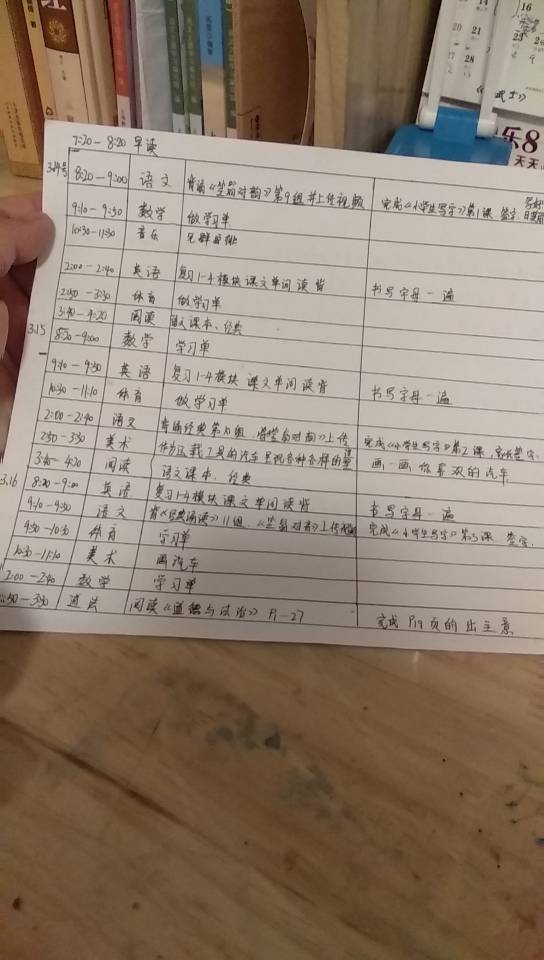 7:20-8:20 早读
3.14号 8:20-9:00 语文 背诵《笠翁对韵》第9组并上传视频 完成《小学生写字》第1课 签字
9:10-9:50 数学 做学习单
10:30-11:30 音乐 见群安排
2:00-2:40 英语 复习1-4模块课文单词读背 书写字母一遍
2:50-3:30 体育 做学习单
3:40-4:20 阅读 语文课本、经典
3.15 8:20-9:00 数学 学习单
9:10-9:50 英语 复习1-4模块课文单词读背 书写字母一遍
10:30-11:10 体育 做学习单
2:00-2:40 语文 背诵经典第10组,《笠翁对韵》上传 完成《小学生写字》第2课,家长签字.
2:50-3:30 美术 作为运载工具的汽车呈现各种各样的 画一画你喜欢的汽车
3:40-4:20 阅读 语文课本、经典
3.16 8:20-9:00 英语 复习1-4模块课文单词读背 书写字母一遍
9:10-9:50 语文 背《经典诵读》11组,《笠翁对韵》上传视频 完成《小学生写字》第3课 签字.
9:50-10:30 体育 学习单
10:30-11:10 美术 画汽车
2:00-2:40 数学 学习单
2:50-3:30 道法 阅读《道德与法治》P1-27 完成P19页的出主意
16
14
20 21
27 28
23
乐8
天天